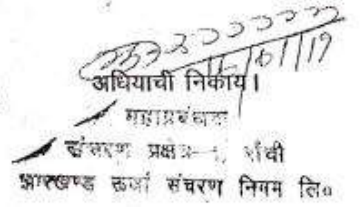 अधियाची निकाय।
महाप्रबंधक
संचरण प्रक्षेत्र-1, राँची
झारखण्ड ऊर्जा संचरण निगम लि०